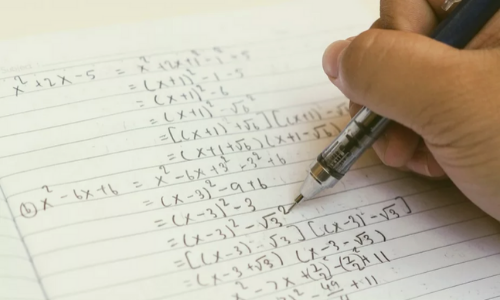 x² + 2x - 5 = x² + 2x + 1² - 1² - 5
= (x+1)² - 1 - 5
= (x+1)² - 6
= (x+1)² - √6²
= [(x+1) + √6] [(x+1) - √6
= (x+1+√6) (x+1-√6)
② x² - 6x + 6 = x² - 6x + 3² - 3² + 6
= (x-3)² - 9 + 6
= (x-3)² - 3
= (x-3)² - √3²
= [(x-3) - √3] [(x-3) - √3]
= (x-3+√3) (x-3-√3)
x² - 7x + (7/2)² - (7/2)² + 11
49 + 11